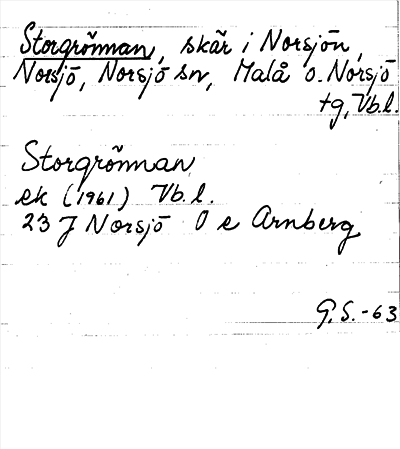 Storgrönnan, skär i Norsjön,
Norsjö, Norsjö sn, Malå o. Norsjö
tg, Vb.l.
Storgrönnan
ek (1961) Vb. l.
23 J Norsjö O e Arnberg
G. S. -63